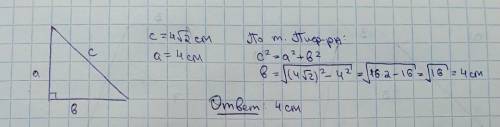 c = 4√2 см
a = 4 см
По т. Пифагора:
c² = a² + b²
b = √((4√2)² − 4²) = √(16·2 − 16) = √16 = 4 см
Ответ: 4 см
a
c
b